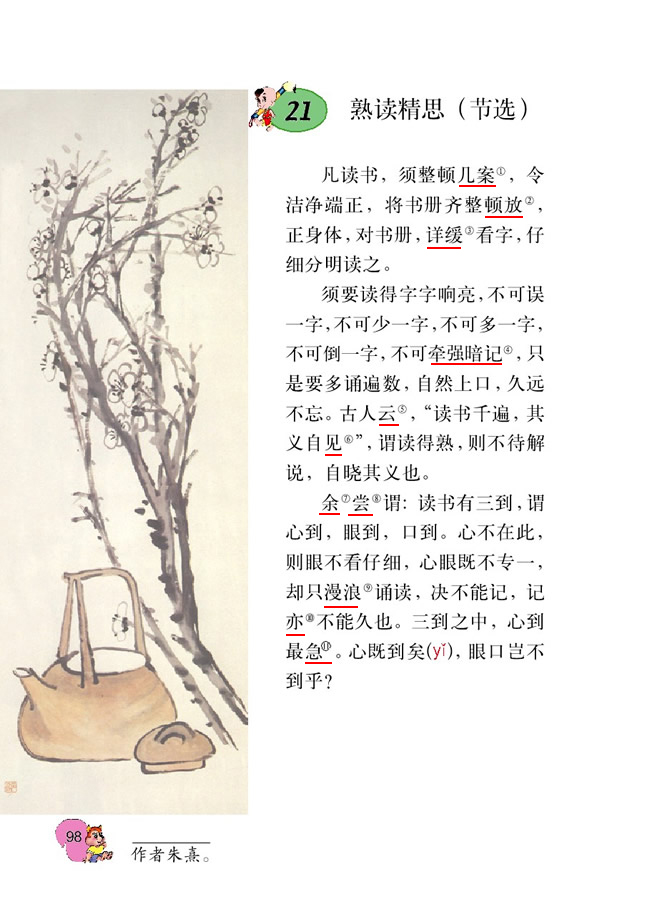 21 熟读精思（节选）
凡读书，须整顿几案①，令
洁净端正，将书册齐整顿放②，
正身体，对书册，详缓③看字，仔
细分明读之。
须要读得字字响亮，不可误
一字，不可少一字，不可多一字，
不可倒一字，不可牵强暗记④，只
是要多诵遍数，自然上口，久远
不忘。古人云⑤，“读书千遍，其
义自见⑥”，谓读得熟，则不待解
说，自晓其义也。
余⑦尝⑧谓：读书有三到，谓
心到，眼到，口到。心不在此，
则眼不看仔细，心眼既不专一，
却只漫浪⑨诵读，决不能记，记
亦⑩不能久也。三到之中，心到
最急⑪。心既到矣(yǐ)，眼口岂不
到乎？
98
作者朱熹。